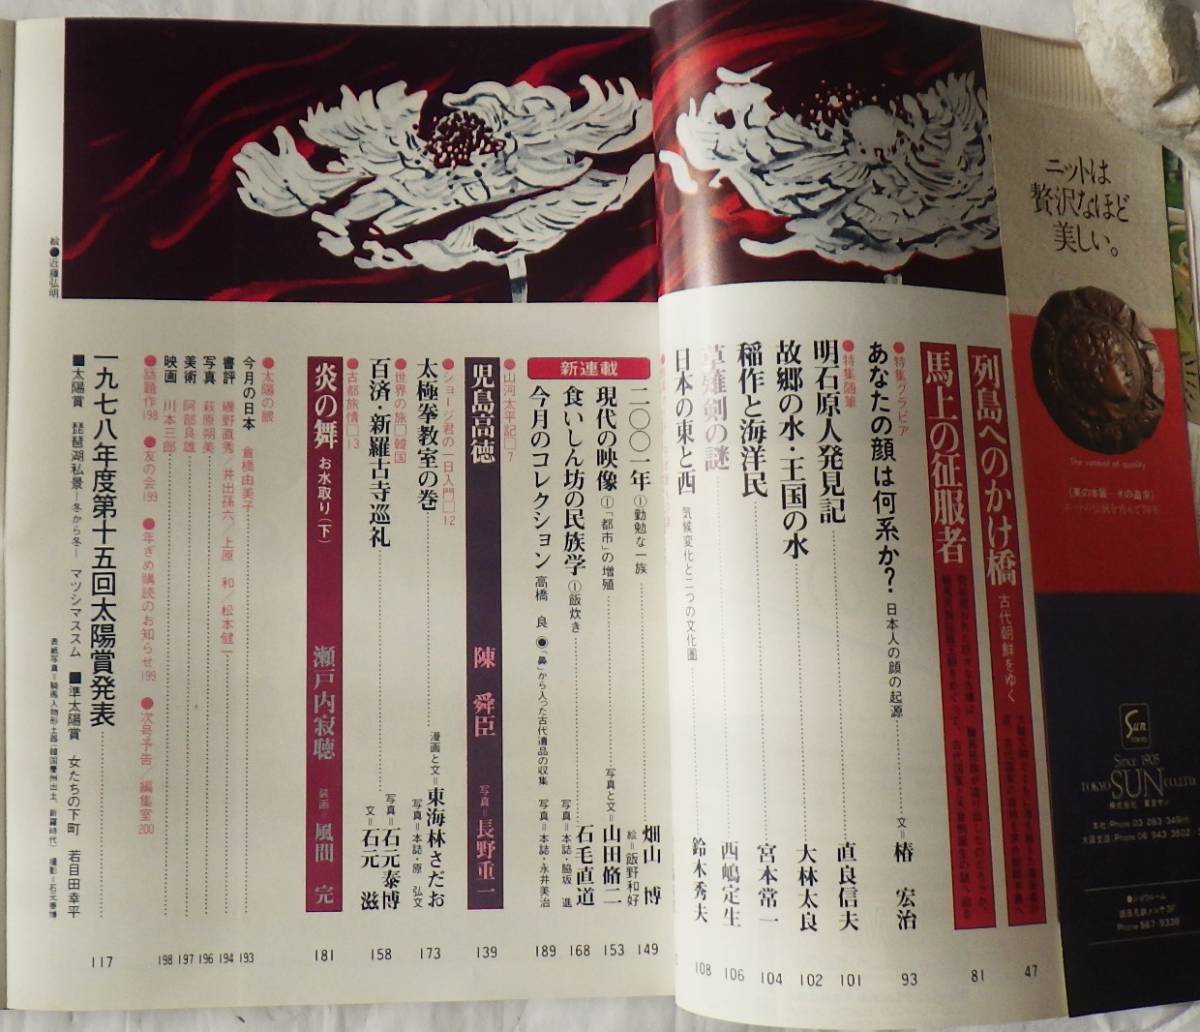 ニットは
贅沢なほど
美しい。
The symbol of quality
Sun
TOKYO
Since 1905
TOKYO SUN CO.,LTD.
●ショウルーム
列島へのかけ橋 古代朝鮮をゆく
47
馬上の征服者
81
●特集グラビア
あなたの顔は何系か? 日本人の顔の起源 文=椿 宏治
93
●特集随筆
明石原人発見記 直良信夫
101
故郷の水・王国の水 大林太良
102
稲作と海洋民 宮本常一
104
草薙剣の謎 西嶋定生
106
日本の東と西 気候変化と二つの文化圏 鈴木秀夫
108
新連載
二〇〇一年 ①勤勉な一族 畑山 博
絵=飯野和好
149
現代の映像 ①「都市」の増殖 写真と文=山田脩二
153
食いしん坊の民族学 ①飯炊き 石毛直道
写真=本誌・脇坂 進
168
今月のコレクション 高橋 良 ●「鼻」から入った古代遺品の収集 写真=本誌・永井美治
189
●山河太平記□7
児島高徳 陳 舜臣 写真=長野重一
139
●ショージ君の一日入門□12
太極拳教室の巻 漫画と文=東海林さだお
写真=本誌・原 弘文
173
●世界の旅□韓国
百済・新羅古寺巡礼 写真=石元泰博
文=石元 滋
158
●古都旅情□13
炎の舞 お水取り(下) 瀬戸内寂聴 装画=風間 完
181
●太陽の眼
今月の日本 倉橋由美子
193
書評 磯野直秀/井出孫六/上原 和/松本健一
194
写真 萩原朔美
196
美術 阿部良雄
197
映画 川本三郎
198
●話題作198 ●友の会199 ●年ぎめ購読のお知らせ199 ●次号予告/編集室200
一九七八年度第十五回太陽賞発表
117
■太陽賞 琵琶湖私景—冬から冬— マツシマススム ■準太陽賞 女たちの下町 若目田幸平
表紙写真=騎馬人物形土器(韓国慶州出土、新羅時代) 撮影=石元泰博
絵●近藤弘明